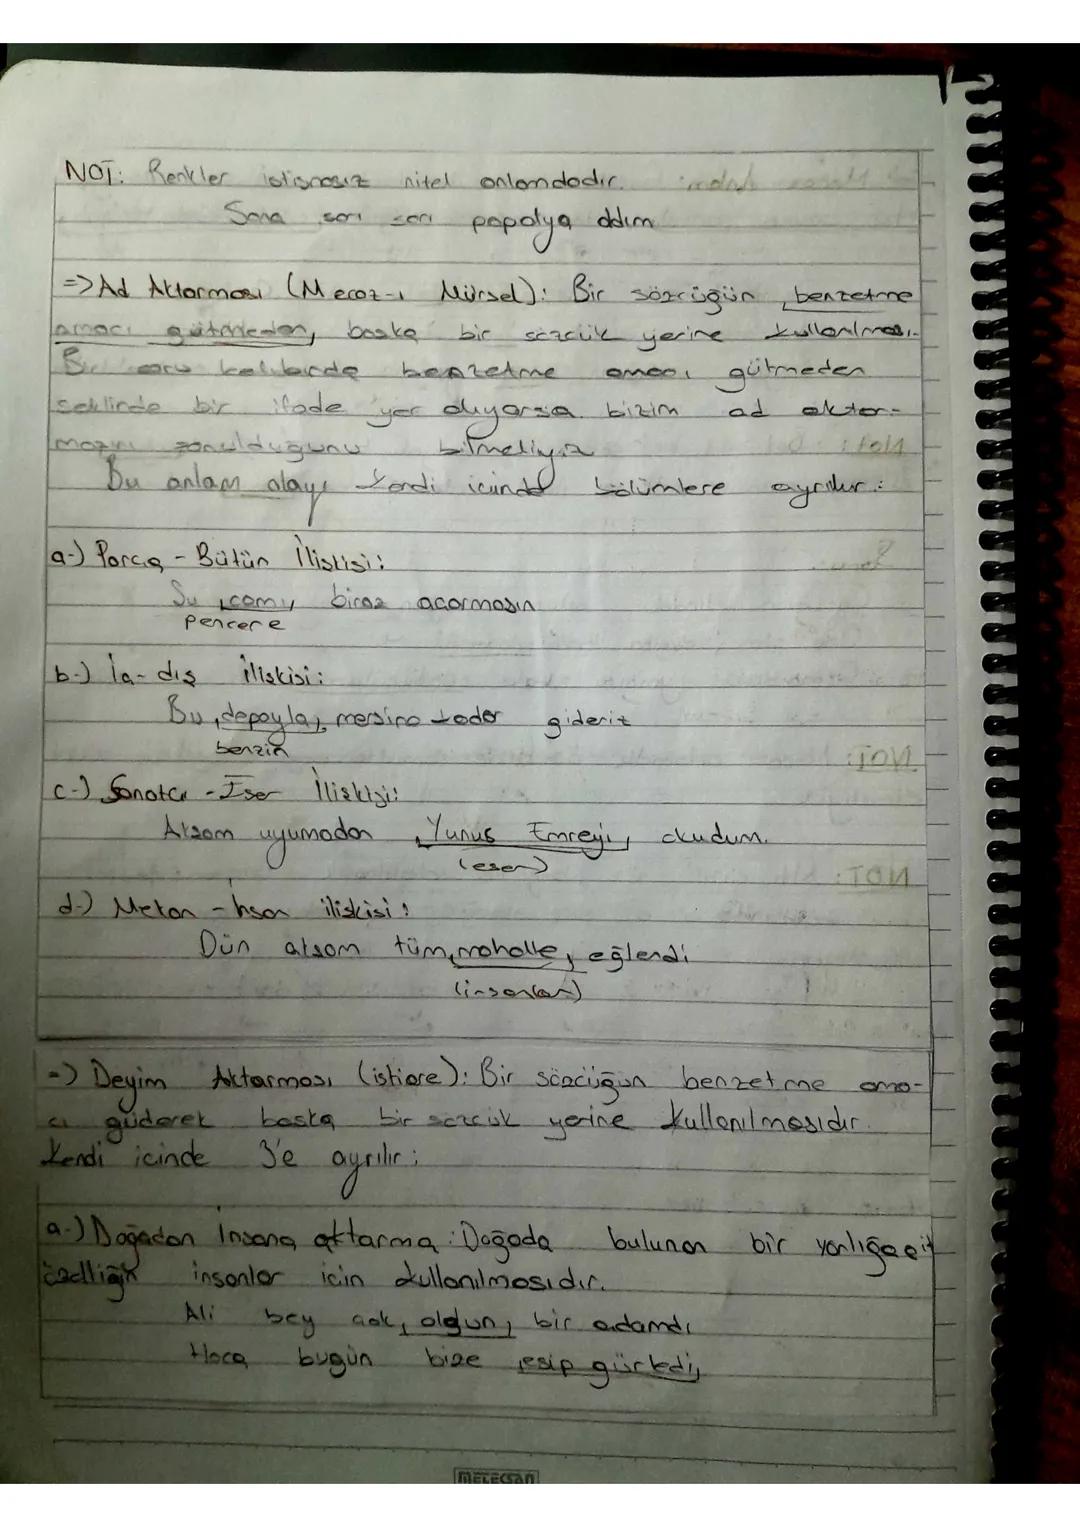 NOT: Renkler istisnasız nitel anlamdadır.
Sana sarı sarı papatya aldım
=> Ad Aktarması (Mecaz-ı Mürsel): Bir sözcüğün benzetme
amacı gütmeden, başka bir sözcük yerine kullanılması.
Bir soru kalıbında benzetme amacı gütmeden
şeklinde bir ifade yer alıyorsa bizim ad aktar-
masını sorulduğunu bilmeliyiz
Bu anlam olayı kendi içinde bölümlere ayrılır:
a-) Parça - Bütün İlişkisi:
Şu camı biraz açarmasın
pencere
b-) İç - dış ilişkisi:
Bu depoyla, mersine kadar gideriz
benzin
c-) Sanatçı - Eser İlişkisi:
Akşam uyumadan Yunus Emreyi, okudum.
(eser)
d-) Mekan - İnsan ilişkisi:
Dün akşam tüm mahalle, eğlendi
(insanlar)
=) Deyim Aktarması (istiare): Bir sözcüğün benzetme ama-
cı güderek başka bir sözcük yerine kullanılmasıdır.
Kendi içinde 3'e ayrılır:
a-) Doğadan İnsana aktarma: Doğada bulunan bir varlığa ait
özelliğin insanlar için kullanılmasıdır.
Ali bey çok, olgun, bir adamdı
Hoca bugün bize esip gürledi,
MELEKSAN